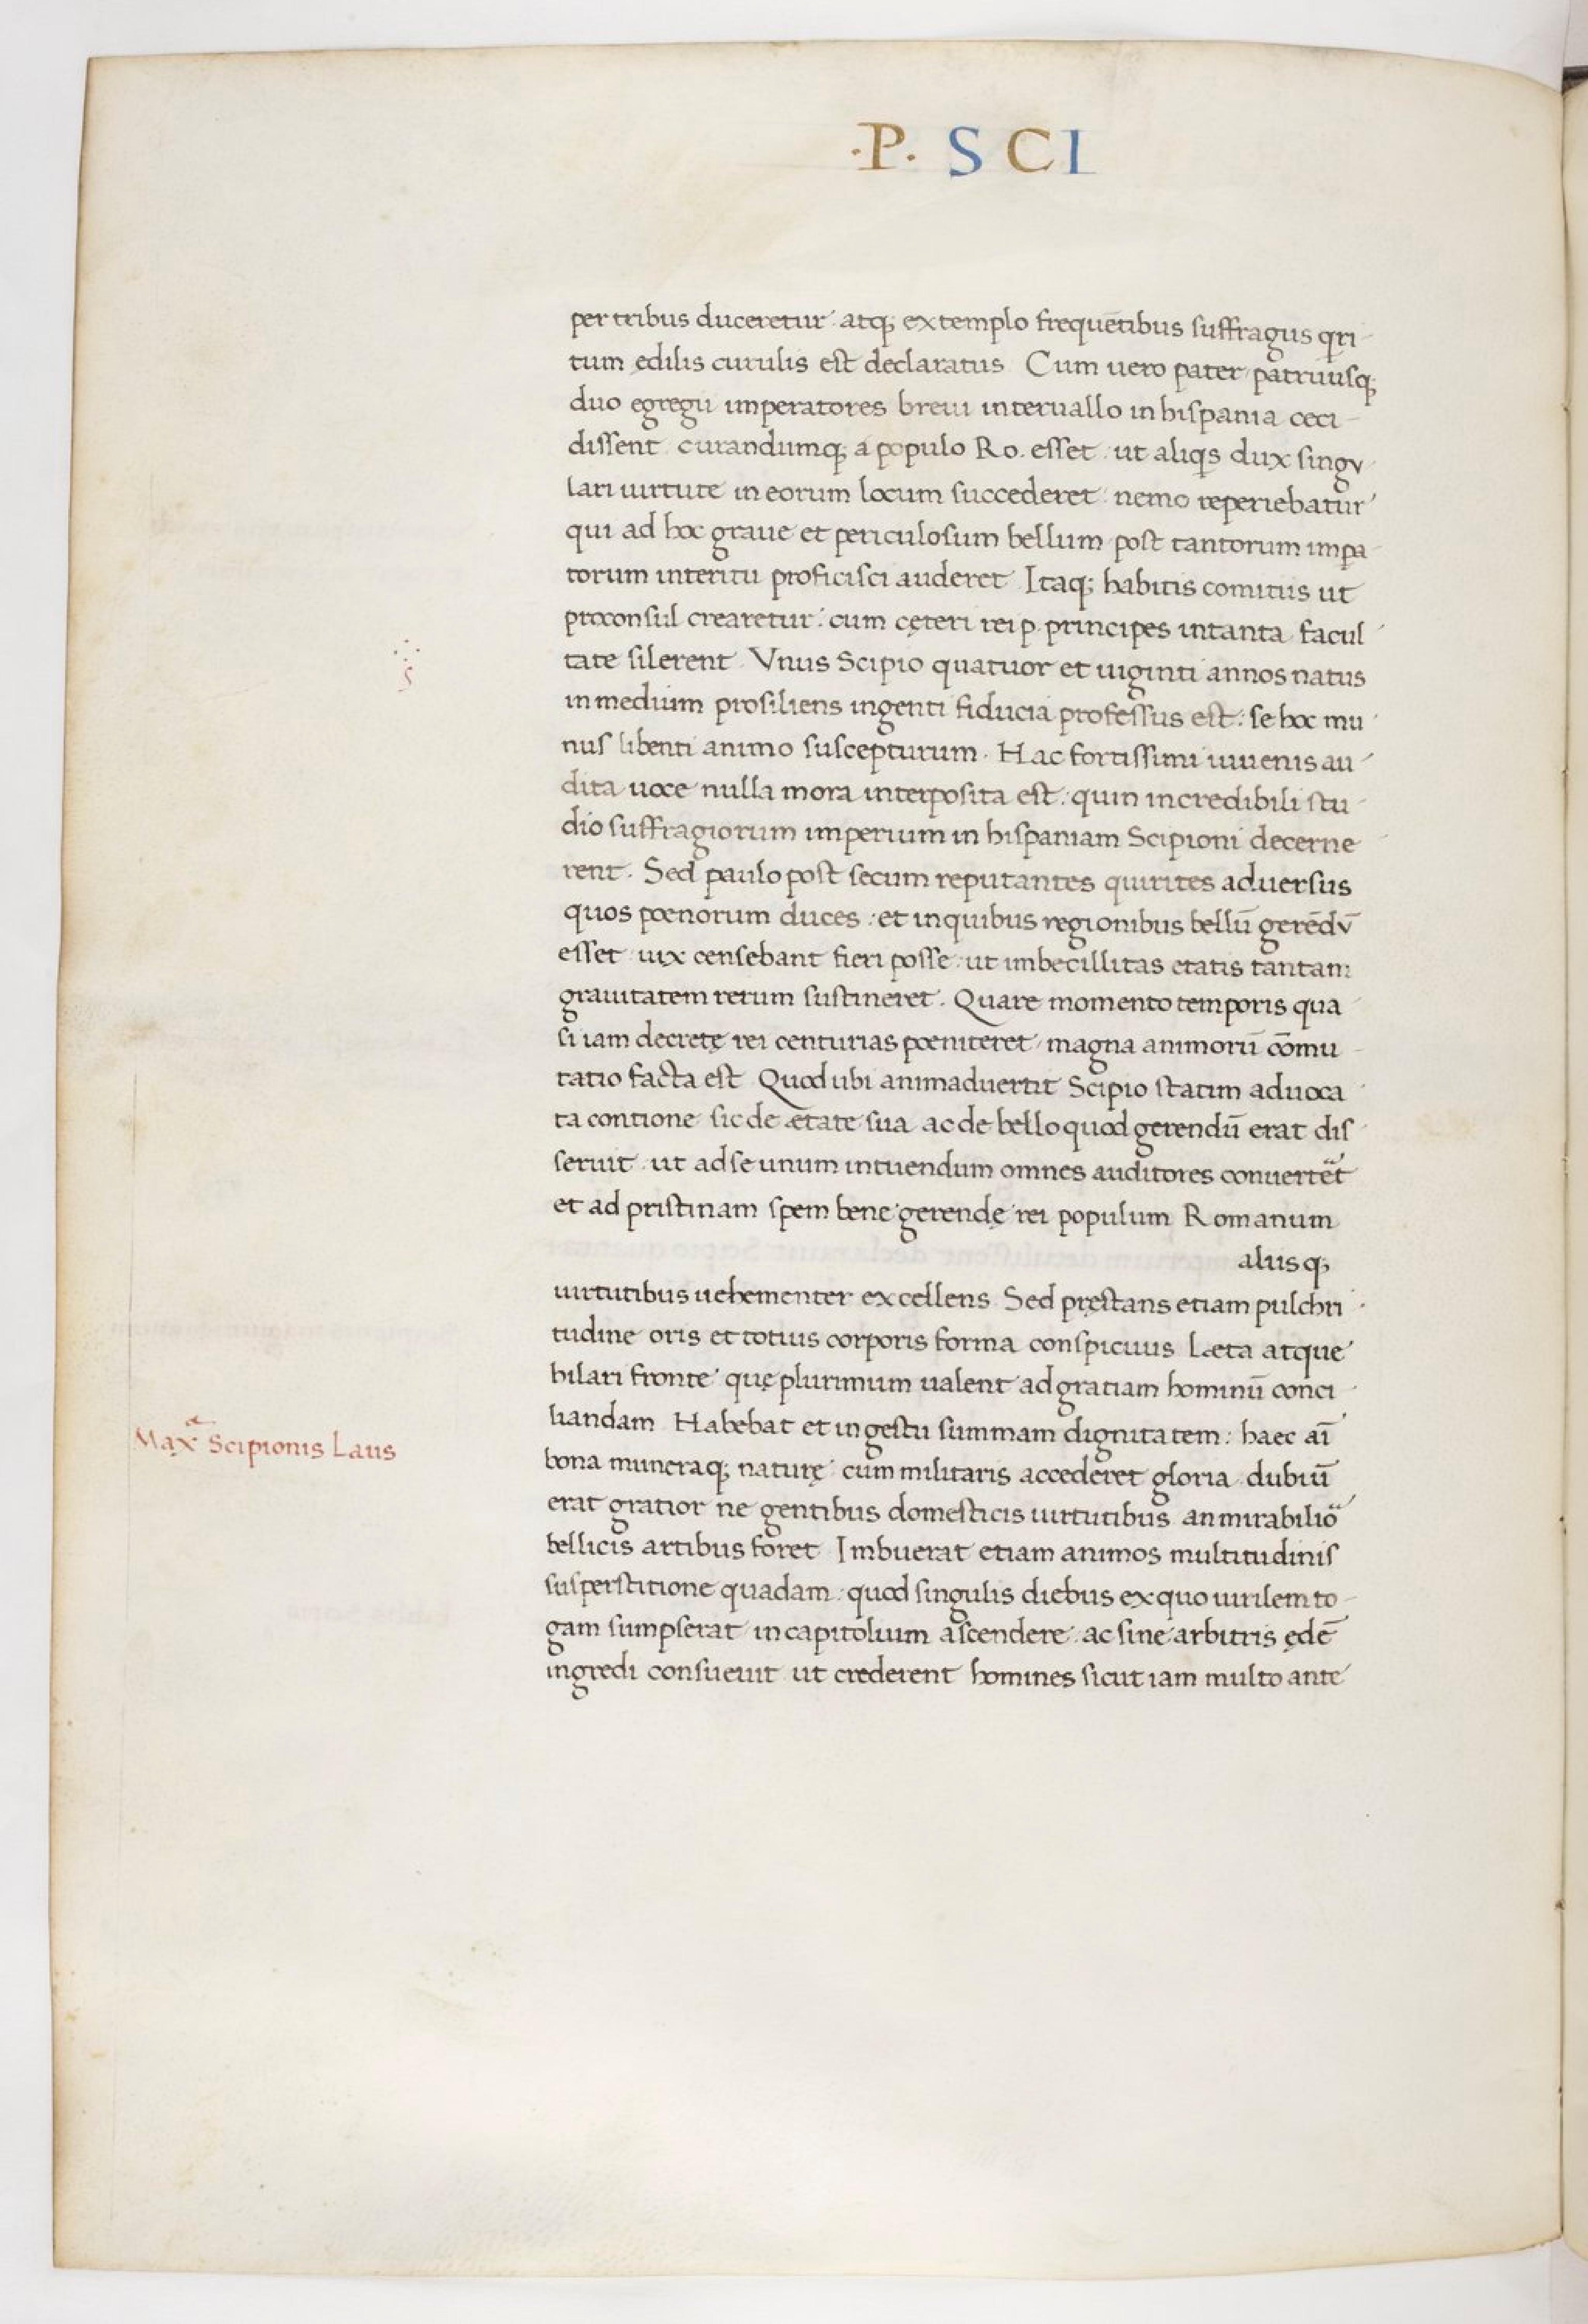 ·P· SCI
per tribus duceretur atq; extemplo frequētibus suffragiis qri-
tum ędilis curulis est declaratus Cum uero pater patruusq;
duo egregii imperatores breui interuallo in hispania ceci-
dissent curandumq; a populo Ro. esset ut aliqis dux singu-
lari uirtute in eorum locum succederet: nemo reperiebatur
qui ad hoc graue et periculosum bellum post tantorum impa-
torum interitu proficisci auderet Itaq; habitis comitiis ut
proconsul crearetur: cum cęteri rei p. principes in tanta facul-
tate silerent Vnus Scipio quatuor et uiginti annos natus
in medium prosiliens ingenti fiducia professus est: se hoc mu-
nus libenti animo suscepturum. Hac fortissimi iuuenis au-
dita uoce nulla mora interposita est: quin incredibili stu-
dio suffragiorum imperium in hispaniam Scipioni decerne-
rent. Sed paulo post secum reputantes quirites aduersus
quos poenorum duces: et in quibus regionibus bellū gerēdū
esset uix censebant fieri posse: ut imbecillitas etatis tantam
grauitatem rerum sustineret. Quare momento temporis qua-
si iam decretę rei centurias poeniteret magna animorū cōmu-
tatio facta est Quod ubi animaduertit Scipio statim aduoca-
ta contione sic de ætate sua ac de bello quod gerendū erat dis-
seruit ut ad se unum intuendum omnes auditores conuertet
et ad pristinam spem bene gerendę rei populum Romanum
aliisq;
uirtutibus uehementer excellens Sed pręstans etiam pulchri-
tudine oris et totius corporis forma conspicuus Læta atque
hilari fronte quę plurimum ualent ad gratiam hominū conci-
liandam Habebat et in gestu summam dignitatem: haec aī
Maxa Scipionis Laus
bona muneraq; naturę cum militaris accederet gloria dubiū
erat gratior ne gentibus domesticis uirtutibus an mirabilio
bellicis artibus foret Imbuerat etiam animos multitudinis
susperstitione quadam: quod singulis diebus ex quo uirilem to-
gam sumpserat in capitolium ascendere ac sine arbitris ędē
ingredi consueuit ut crederent homines sicut iam multo ante